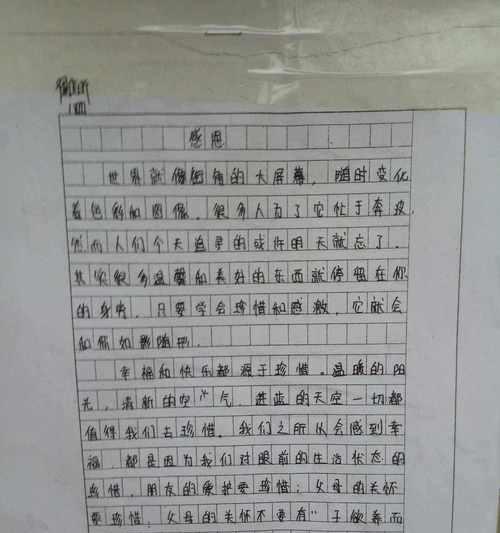 感恩
世界就像绚丽的大屏幕,随时变化
着色彩和图像。很多人为了它忙于奔波,
然而人们今天追寻的或许明天就忘了。
其实很多温馨和美好的东西就停留在你
的身旁,只要学会珍惜和感激,它就会
和你如影随形。
幸福和快乐都源于珍惜。温暖的阳
光,清新的空气,蓝的天空一切都
值得我们去珍惜。我们之所以会感到幸
福,都是因为我们对眼前的生活状态的
珍惜,朋友的爱护要珍惜;父母的关怀
要珍惜;父母的关怀不要有"子欲养而